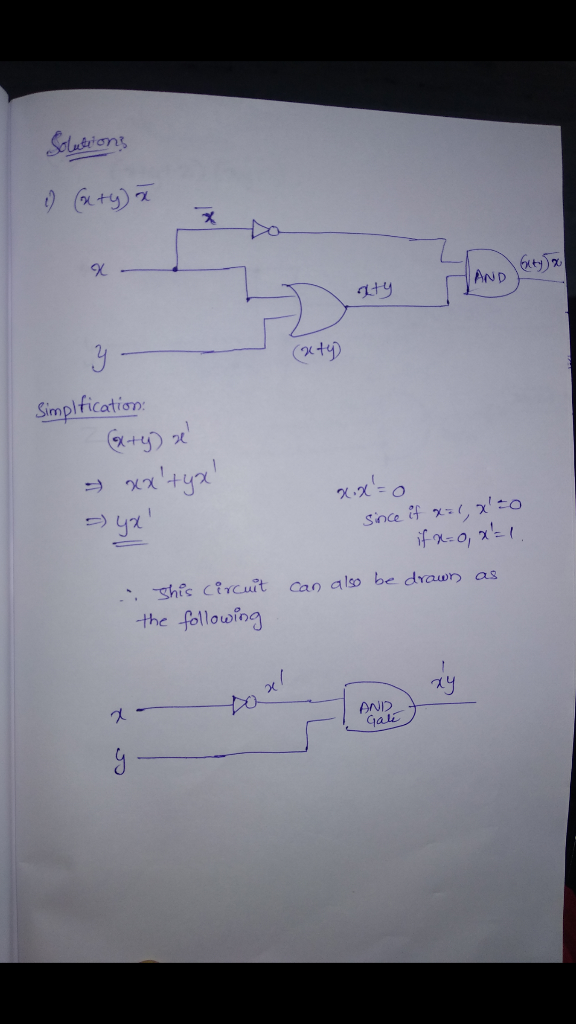 Solutions
1) (x+y) x̄
x̄
x
AND
(x+y) x̄
x+y
y
(x+y)
Simplfication:
(x+y) x'
⇒ xx'+yx'
⇒ yx'
x.x'=0
since if x=1, x'=0
if x=0, x'=1.
∴ This circuit can also be drawn as
the following
x
x'
AND
Gate
x'y
y